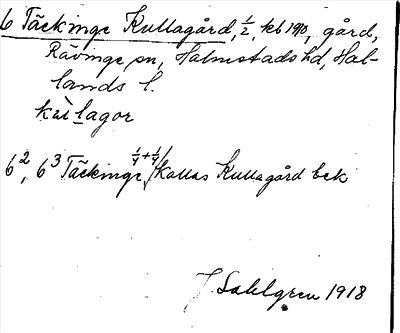 6 Täckinge Kullagård, 1/2, kb 1910, gård,
Rävinge sn, Halmstads hd, Hal-
lands l.
6², 6³ Täckinge 1/4 + 1/4 kallas Kullagård bek
J. Sahlgren 1918